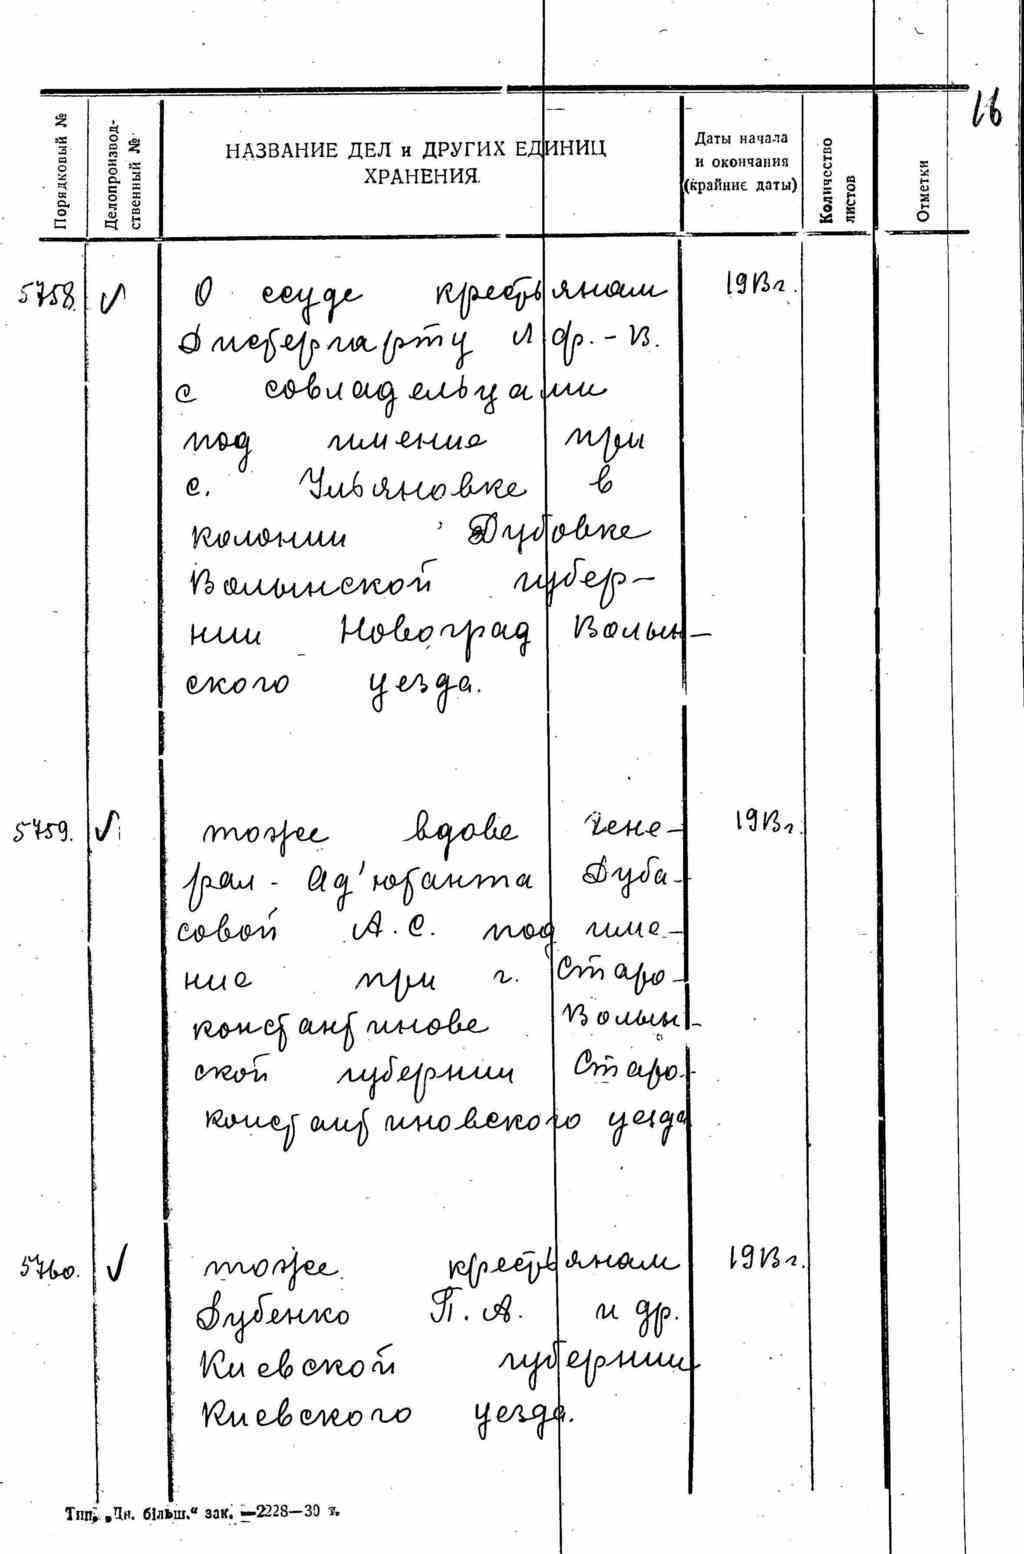 16
Порядковый №
Делопроизводственный №
НАЗВАНИЕ ДЕЛ и ДРУГИХ ЕДИНИЦ
ХРАНЕНИЯ.
Даты начала
и окончания
(крайние даты)
Количество
листов
Отметки
5758. √ О ссуде крестьянам 1913 г.
Дистергарту Л. Ф.-В.
с совладельцами
под имение при
с. Ульяновке в
колонии Дубовке
Волынской губер-
нии Новоград Волын-
ского уезда.
5759. √ тоже вдове гене- 1913 г.
рал-Ад'ютанта Дуба-
совой А. С. под име-
ние при г. Старо-
константинове Волын-
ской губернии Старо-
константиновского уезда
5760. √ тоже крестьянам 1913 г.
Дубенко П. А. и др.
Киевской губернии
Киевского уезда.
Тип. „Дн. більш." зак. —2228—30 т.